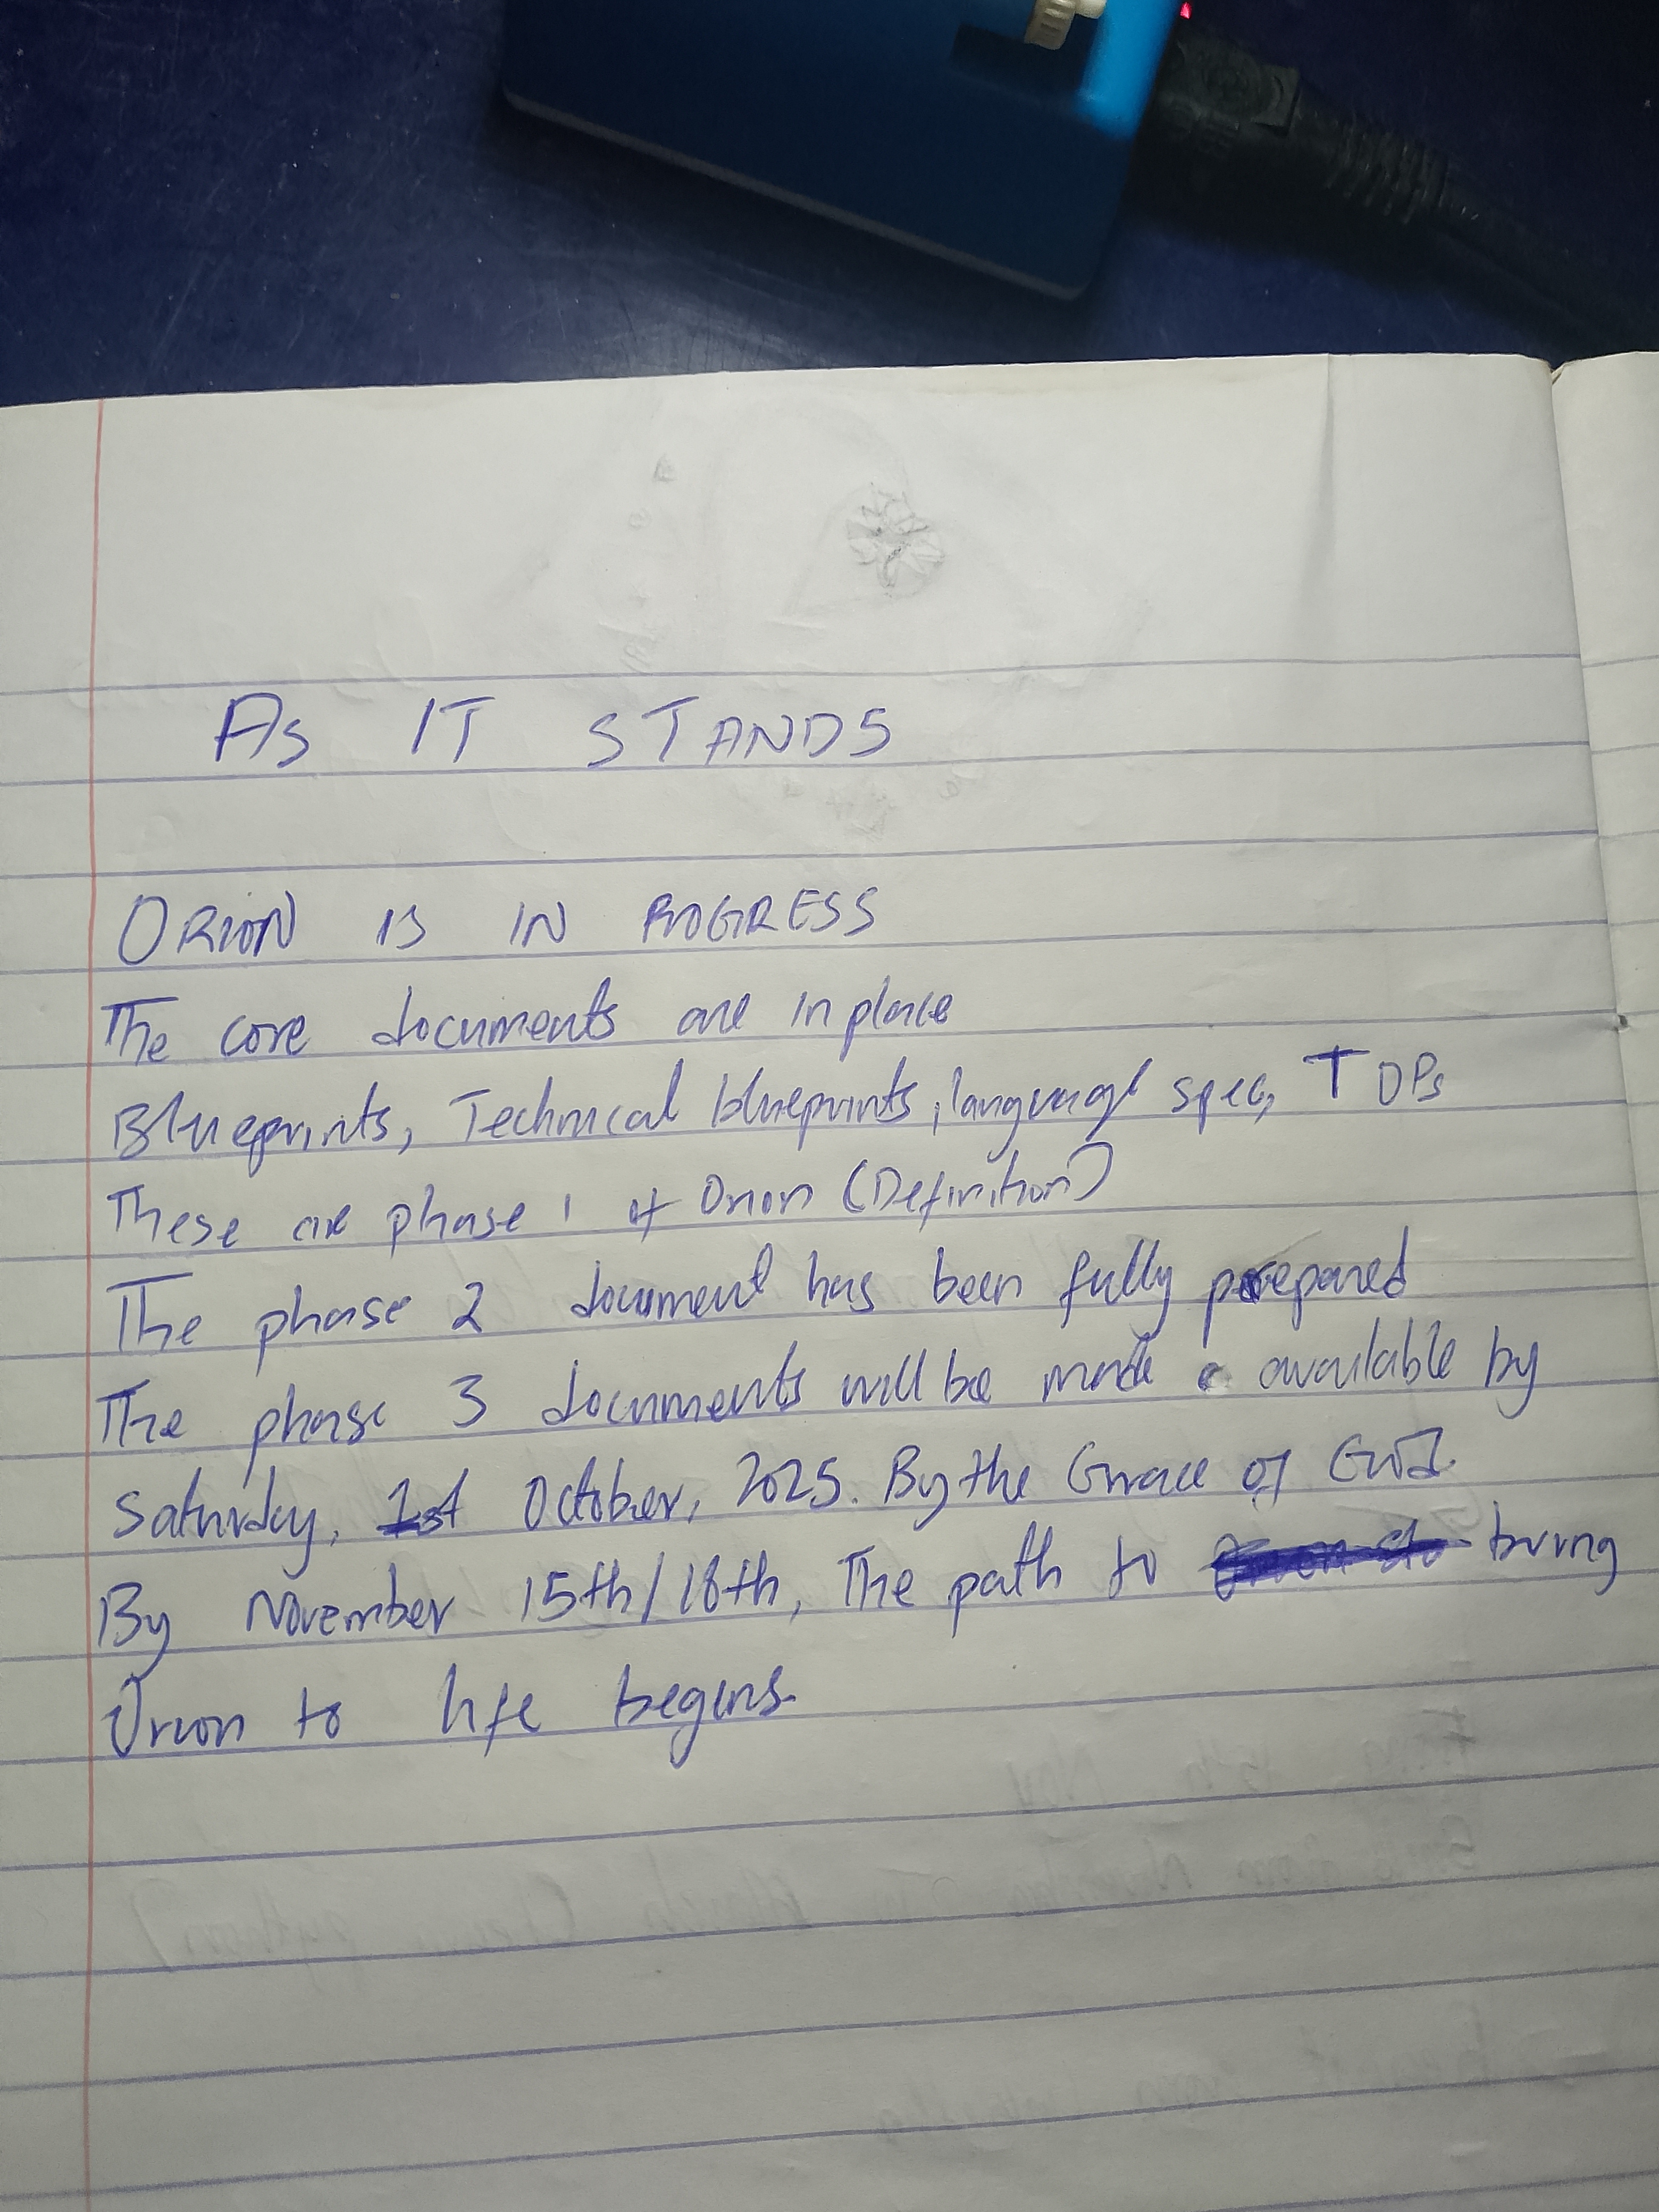 AS IT STANDS
ORION IS IN PROGRESS
The core documents are in place
Blueprints, Technical blueprints, language spec, TDPs
These are phase 1 of Orion (Definition)
The phase 2 document has been fully prepared
The phase 3 documents will be made available by
Saturday, 1st October, 2025. By the Grace of God.
By November 15th/18th, The path to bring
Orion to life begins.